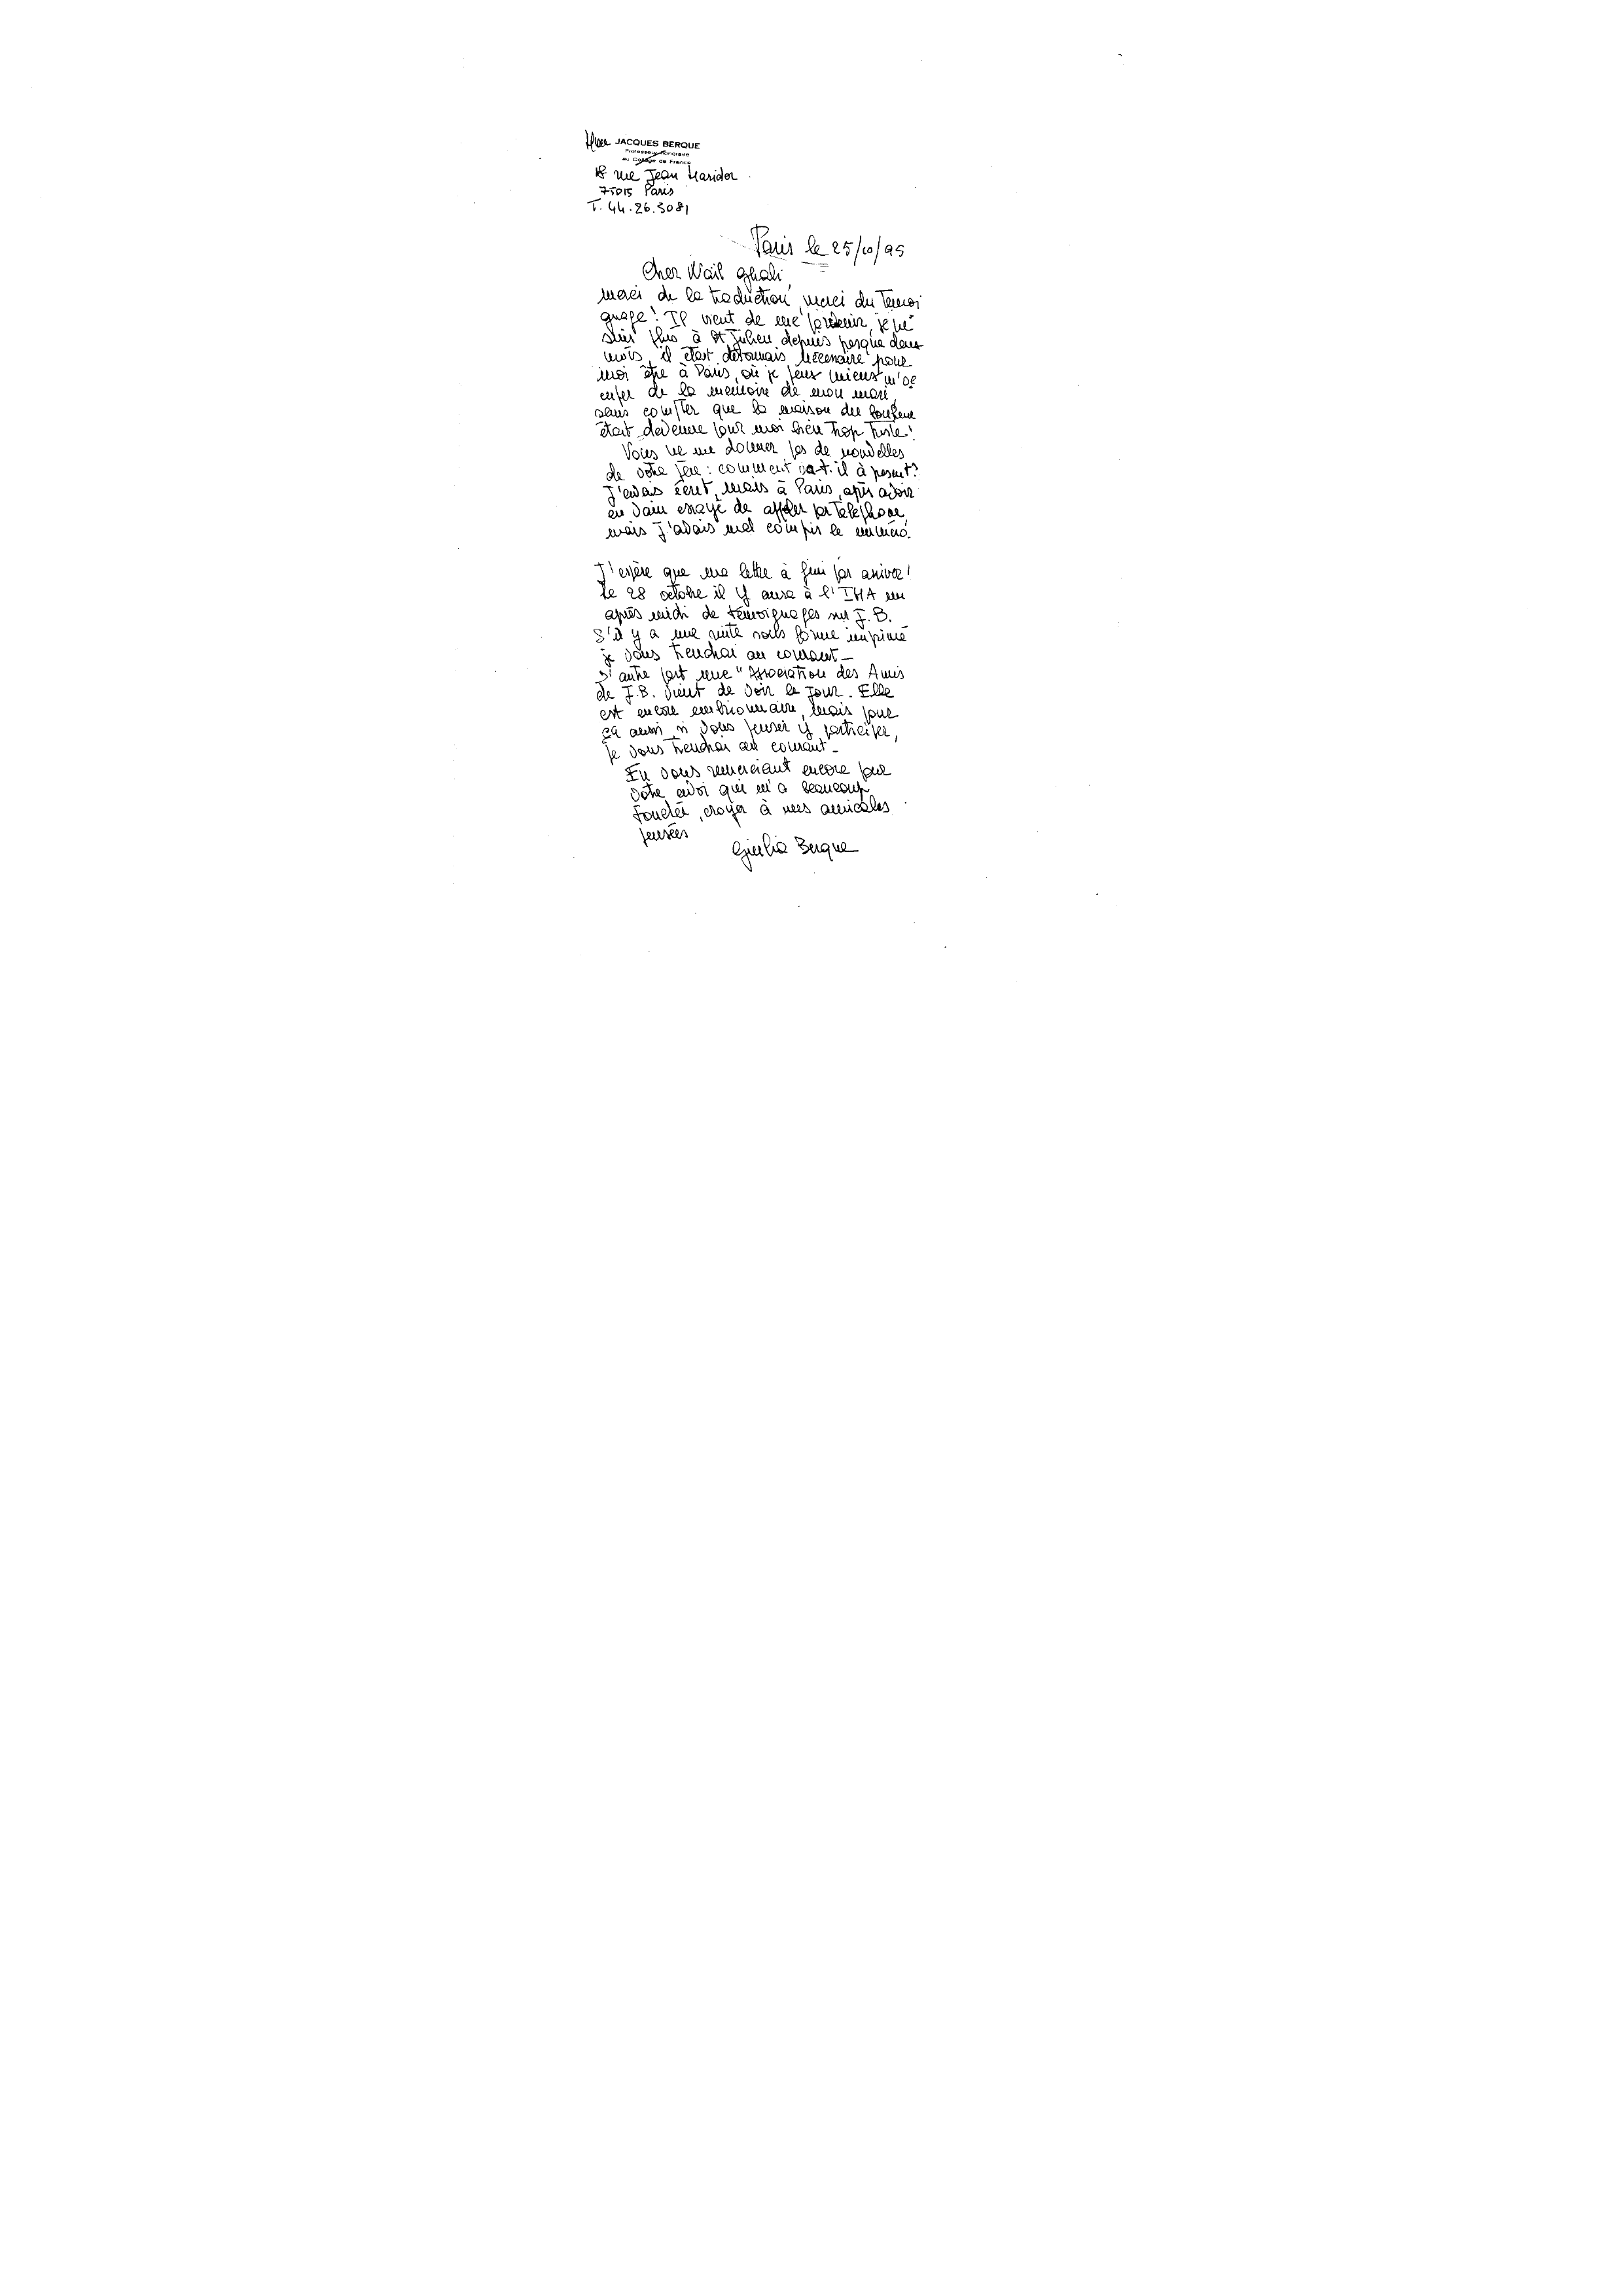 Mme JACQUES BERQUE
Professeur honoraire
au Collège de France
18 rue Jean Maridor
75015 Paris
T. 44.26.3081
Paris le 25/10/95
Cher Wail Ghali,
merci de la traduction, merci du Temoi
gnage! Il vient de me parvenir, je ne
suis plus à St Julien depuis presque deux
mois, il était désormais nécessaire pour
moi être à Paris, où je peux mieux m'oc
cuper de la memoire de mon mari,
sans compter que la maison du bonheur
était devenue pour moi bien trop triste!
Vous ne me donnez pas de nouvelles
de votre père: comment va-t-il à present?
J'avais écrit, mais à Paris, après avoir
en vain essayé de appeler par telephone,
mais j'avais mal compris le numéro.
J'espère que ma lettre à fini par arriver!
Le 28 octobre il y aura à l'IMA un
après midi de témoignages sur J.B.
S'il y a une suite sous forme imprimé
je vous tiendrai au courant_
D'autre part une "Association des Amis
de J.B. vient de voir le jour. Elle
est encore embrionnaire, mais pour
ça aussi, si vous pensez y participer,
je vous tiendrai au courant_
En vous remerciant encore pour
votre envoi qui m'a beaucoup
touchée, croyez à mes amicales
pensées
Giulia Berque